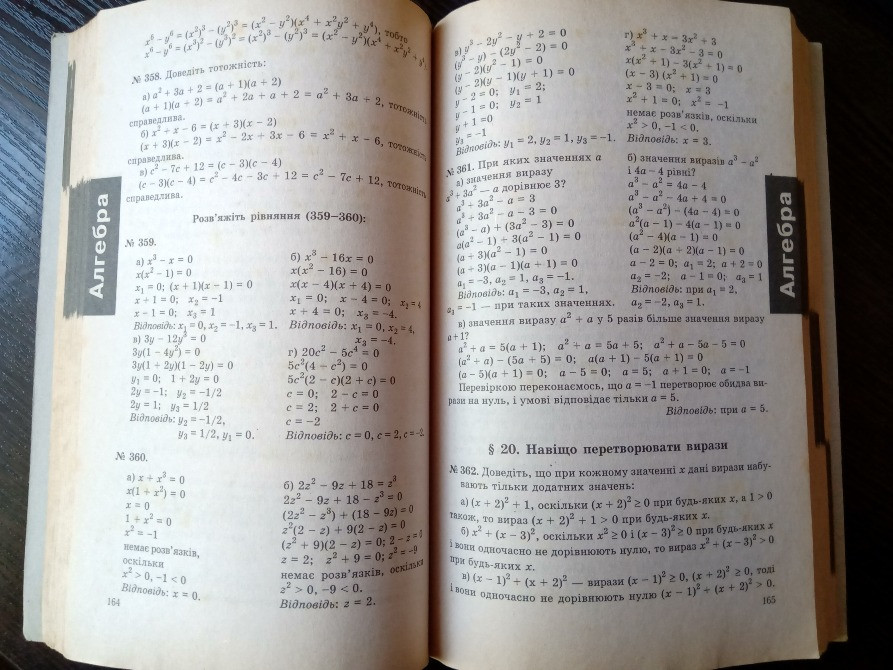 x⁶ − y⁶ = (x²)³ − (y²)³ = (x² − y²)(x⁴ + x²y² + y⁴), тобто
x⁶ − y⁶ = (x³)² − (y³)² = (x²)³ − (y²)³ = (x² − y²)(x⁴ + x²y² + y⁴).
№ 358. Доведіть тотожність:
а) a² + 3a + 2 = (a + 1)(a + 2)
(a + 1)(a + 2) = a² + 2a + a + 2 = a² + 3a + 2, тотожність
справедлива.
б) x² + x − 6 = (x + 3)(x − 2)
(x + 3)(x − 2) = x² − 2x + 3x − 6 = x² + x − 6, тотожність
справедлива.
в) c² − 7c + 12 = (c − 3)(c − 4)
(c − 3)(c − 4) = c² − 4c − 3c + 12 = c² − 7c + 12, тотожність
справедлива.
Розв'яжіть рівняння (359–360):
Алгебра
№ 359.
а) x³ − x = 0
x(x² − 1) = 0
x₁ = 0; (x + 1)(x − 1) = 0
x + 1 = 0; x₂ = −1
x − 1 = 0; x₃ = 1
Відповідь: x₁ = 0, x₂ = −1, x₃ = 1.
в) 3y − 12y³ = 0
3y(1 − 4y²) = 0
3y(1 + 2y)(1 − 2y) = 0
y₁ = 0; 1 + 2y = 0
2y = −1; y₂ = −1/2
2y = 1; y₃ = 1/2
Відповідь: y₂ = −1/2,
y₃ = 1/2, y₁ = 0.
б) x³ − 16x = 0
x(x² − 16) = 0
x(x − 4)(x + 4) = 0
x₁ = 0; x − 4 = 0; x₂ = 4
x + 4 = 0; x₃ = −4.
Відповідь: x₁ = 0, x₂ = 4,
x₃ = −4.
г) 20c² − 5c⁴ = 0
5c²(4 − c²) = 0
5c²(2 − c)(2 + c) = 0
c = 0; 2 − c = 0
c = 2; 2 + c = 0
c = −2
Відповідь: c = 0, c = 2, c = −2.
№ 360.
а) x + x³ = 0
x(1 + x²) = 0
x = 0
1 + x² = 0
x² = −1
немає розв'язків,
оскільки
x² > 0, −1 < 0
Відповідь: x = 0.
б) 2z² − 9z + 18 = z³
2z² − 9z + 18 − z³ = 0
(2z² − z³) + (18 − 9z) = 0
z²(2 − z) + 9(2 − z) = 0
(z² + 9)(2 − z) = 0; 2 − z = 0
z = 2; z² + 9 = 0; z² = −9
немає розв'язків, оскільки
z² > 0, −9 < 0.
Відповідь: z = 2.
164
в) y³ − 2y² − y + 2 = 0
(y³ − y) − (2y² − 2) = 0
(y − 2)(y² − 1) = 0
(y − 2)(y − 1)(y + 1) = 0
y − 2 = 0; y₁ = 2;
y − 1 = 0; y₂ = 1
y + 1 = 0
y₃ = −1
Відповідь: y₁ = 2, y₂ = 1, y₃ = −1.
г) x³ + x = 3x² + 3
x³ + x − 3x² − 3 = 0
x(x² + 1) − 3(x² + 1) = 0
(x − 3) (x² + 1) = 0
x − 3 = 0; x = 3
x² + 1 = 0; x² = −1
немає розв'язків, оскільки
x² > 0, −1 < 0.
Відповідь: x = 3.
№ 361. При яких значеннях a
а) значення виразу
a³ + 3a² — a дорівнює 3?
a³ + 3a² − a = 3
a³ + 3a² − a − 3 = 0
(a³ − a) + (3a² − 3) = 0
a(a² − 1) + 3(a² − 1) = 0
(a + 3)(a² − 1) = 0
(a + 3)(a − 1)(a + 1) = 0
a₁ = −3, a₂ = 1, a₃ = −1.
Відповідь: a₁ = −3, a₂ = 1,
a₁ = −1 — при таких значеннях.
б) значення виразів a³ − a²
і 4a − 4 рівні?
a³ − a² = 4a − 4
a³ − a² − 4a + 4 = 0
(a³ − a²) − (4a − 4) = 0
a²(a − 1) − 4(a − 1) = 0
(a² − 4)(a − 1) = 0
(a − 2)(a + 2)(a − 1) = 0
a − 2 = 0; a₁ = 2; a + 2 = 0
a₂ = −2; a − 1 = 0; a₃ = 1
Відповідь: при a₁ = 2,
a₂ = −2, a₃ = 1.
Алгебра
в) значення виразу a² + a у 5 разів більше значення виразу
a + 1?
a² + a = 5(a + 1); a² + a = 5a + 5; a² + a − 5a − 5 = 0
(a² + a) − (5a + 5) = 0; a(a + 1) − 5(a + 1) = 0
(a − 5)(a + 1) = 0; a − 5 = 0; a = 5; a + 1 = 0; a = −1
Перевіркою переконаємось, що a = −1 перетворює обидва ви-
рази на нуль, і умові відповідає тільки a = 5.
Відповідь: при a = 5.
§ 20. Навіщо перетворювати вирази
№ 362. Доведіть, що при кожному значенні x дані вирази набу-
вають тільки додатних значень:
а) (x + 2)² + 1, оскільки (x + 2)² ≥ 0 при будь-яких x, а 1 > 0
також, то вираз (x + 2)² + 1 > 0 при будь-яких x.
б) x² + (x − 3)², оскільки x² ≥ 0 і (x − 3)² ≥ 0 при будь-яких x
і вони одночасно не дорівнюють нулю, то вираз x² + (x − 3)² > 0
при будь-яких x.
в) (x − 1)² + (x + 2)² — вирази (x − 1)² ≥ 0, (x + 2)² ≥ 0, тоді
і вони одночасно не дорівнюють нулю (x − 1)² + (x + 2)² > 0.
165